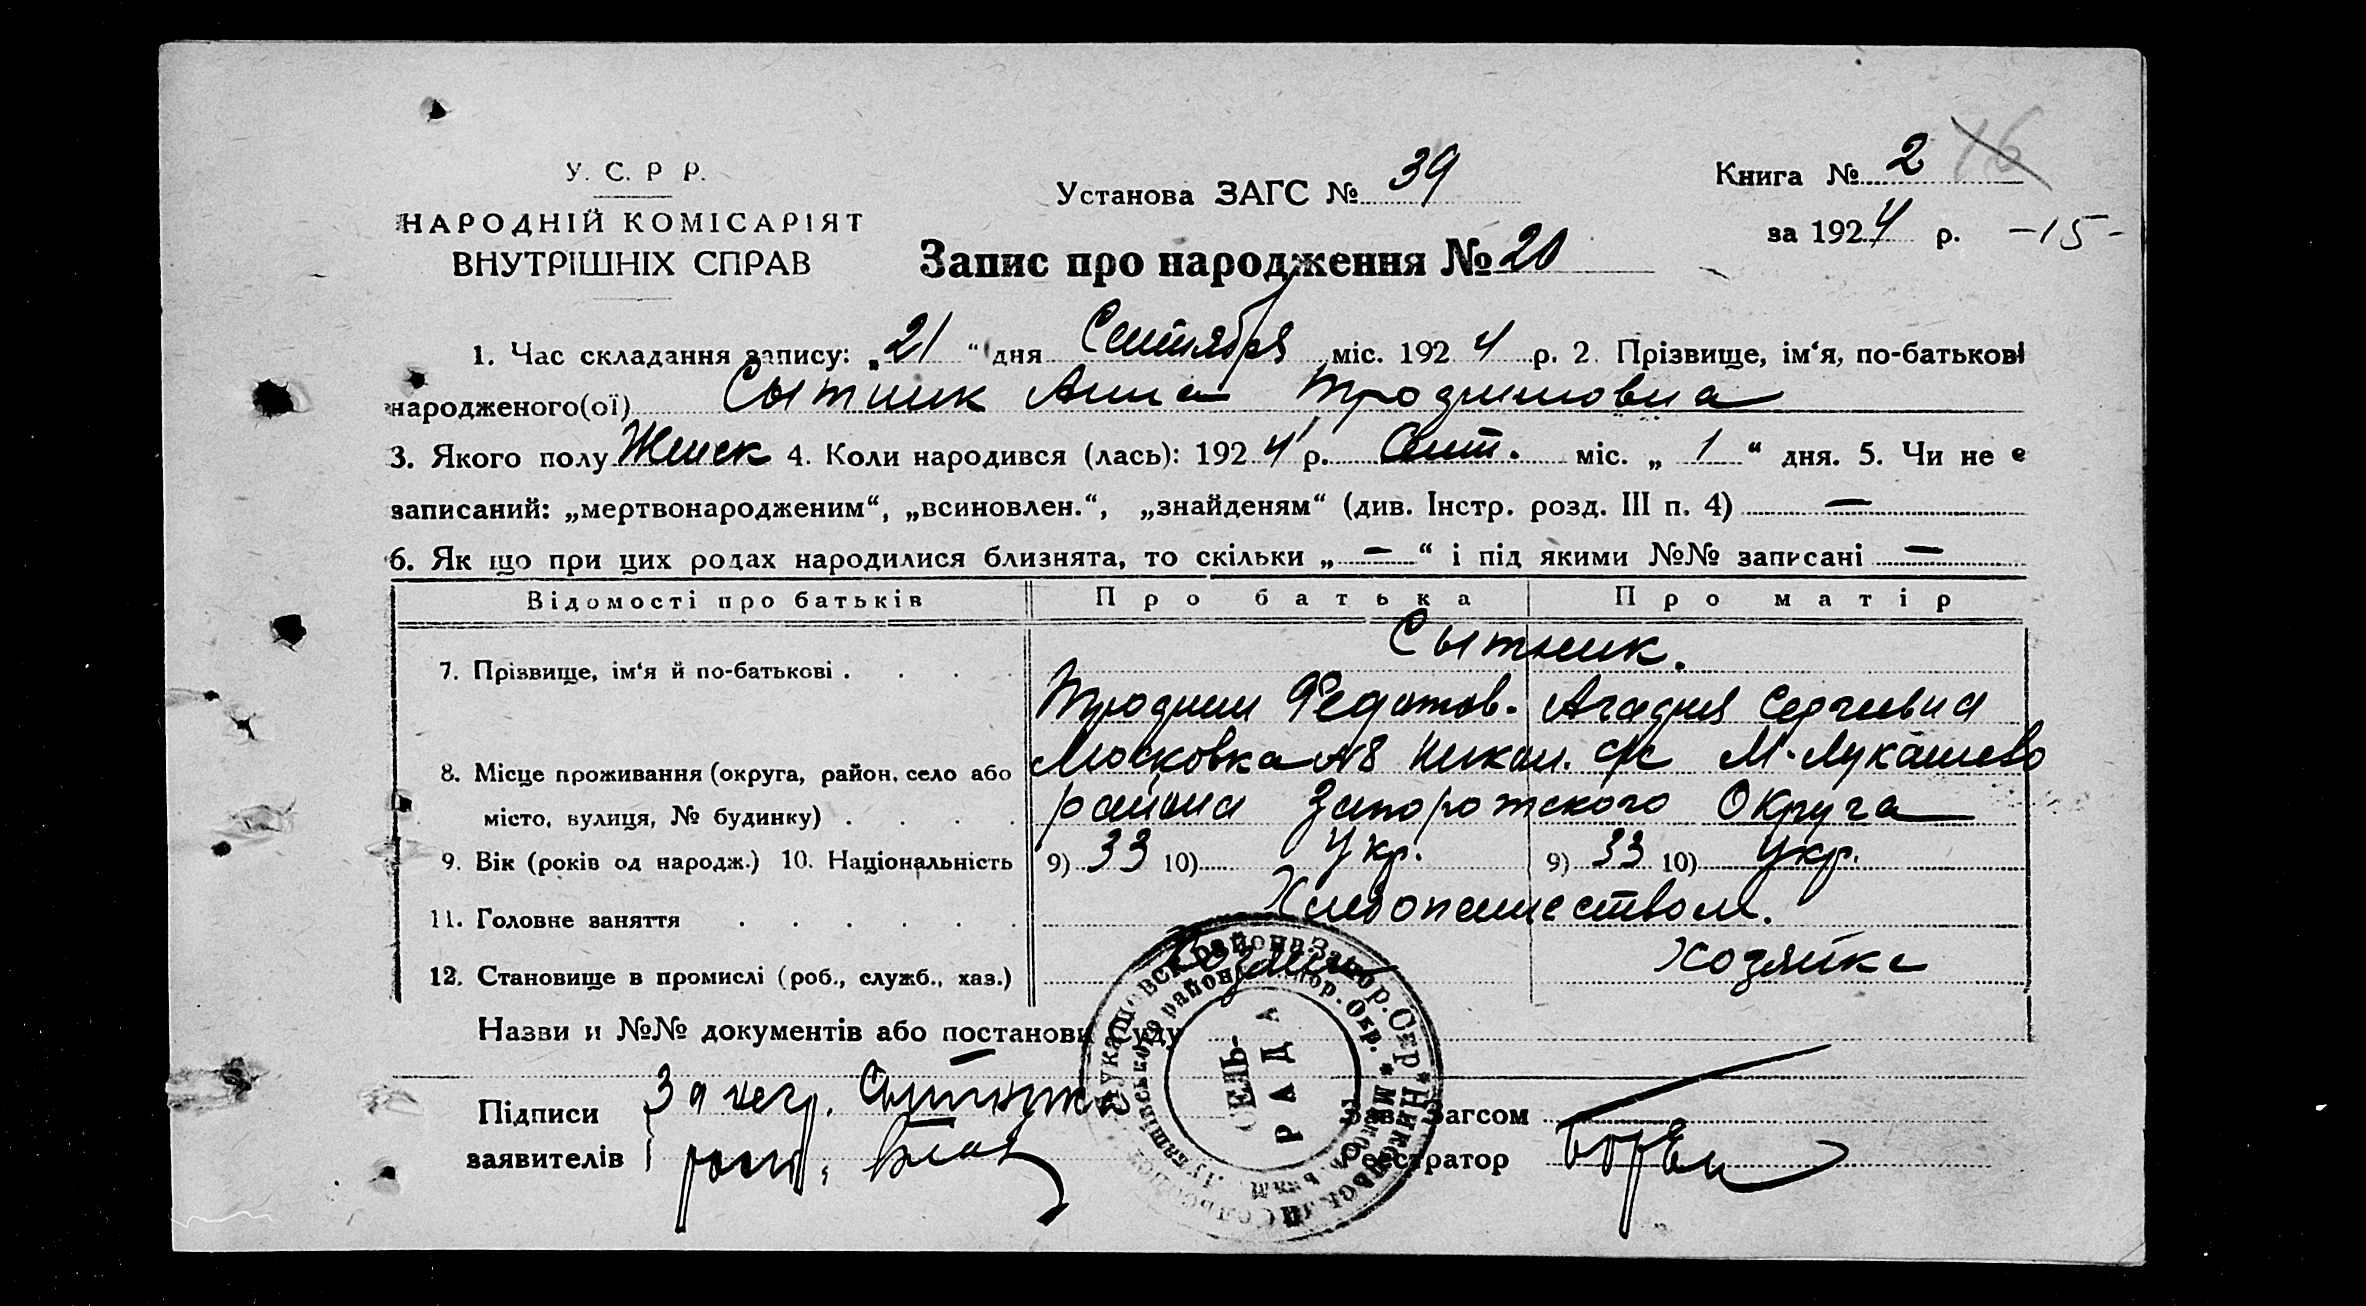 У. С. Р Р.
НАРОДНІЙ КОМІСАРІЯТ
ВНУТРІШНІХ СПРАВ
Установа ЗАГС № 39
Книга № 2 16
за 1924 р. -15-
Запис про народження № 20
1. Час складання запису: „21“ дня Сентября міс. 1924 р. 2. Прізвище, ім‘я, по-батькові
народженого(ої) Сытник Анна Трофимовна
3. Якого полу Женск 4. Коли народився (лась): 1924 р. Сент. міс. „1“ дня. 5. Чи не є
записаний: „мертвонародженим“, „всиновлен.“, „знайденям“ (див. Інстр. розд. III п. 4) —
6. Як що при цих родах народилися близнята, то скільки „—“ і під якими №№ записані —
Відомості про батьків Про батька Про матір
Сытник.
7. Прізвище, ім‘я й по-батькові
Трофим Федотов. Агафия Сергеевна
8. Місце проживання (округа, район, село або Московка №8 Никол. с/с М-Лукашево
місто, вулиця, № будинку) района Запорожского Округа
9. Вік (років од народж.) 10. Національність 9) 33 10) Укр. 9) 33 10) Укр.
11. Головне заняття Хлебопашеством.
12. Становище в промислі (роб., служб., хаз.) Хозяин Хозяйка
Назви й №№ документів або постанови суду —
Підписи За негр. Сытник
заявителів
Зав. Загсом
Реєстратор
СЕЛЬ-
РАДА